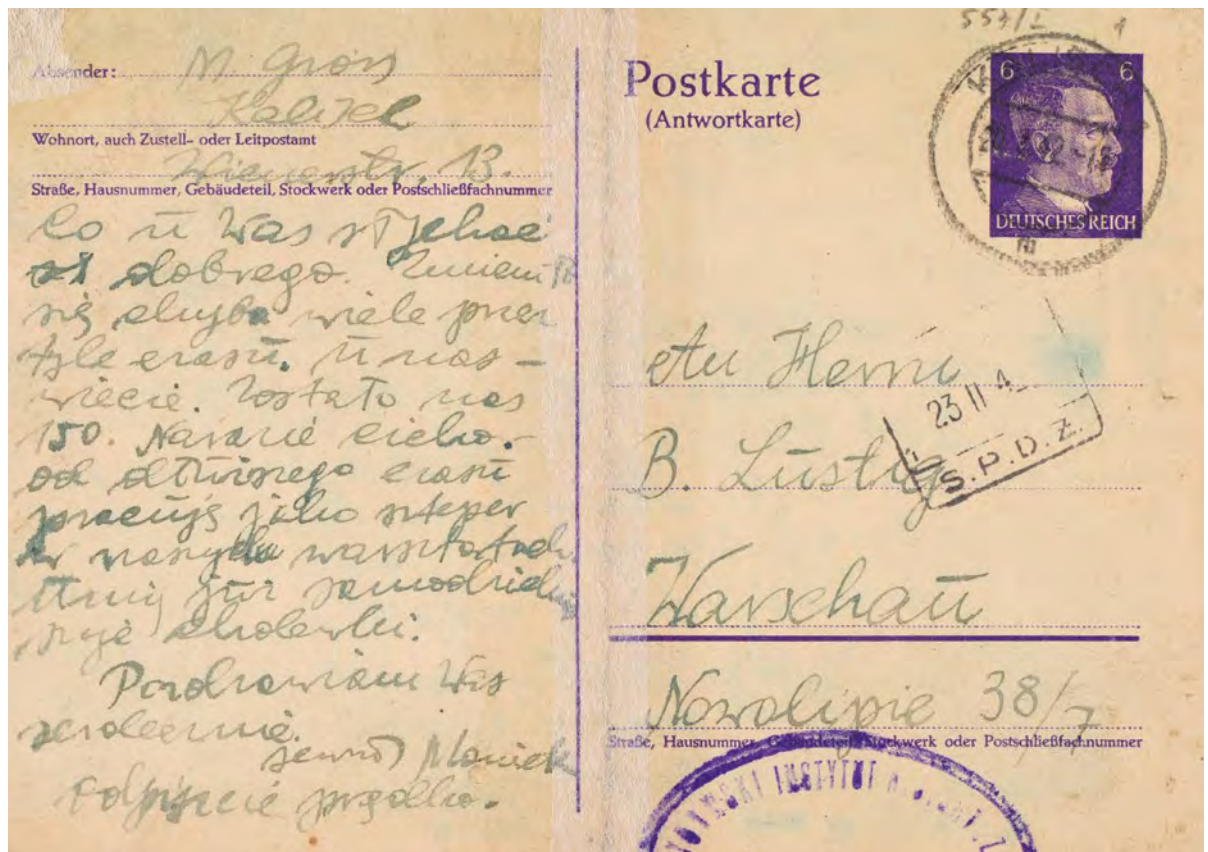 Absender: M. Gross
Kalisch
Wohnort, auch Zustell- oder Leitpostamt
Wienerstr. 13.
Straße, Hausnummer, Gebäudeteil, Stockwerk oder Postschließfachnummer
Co u Was słychać
dobrego.
się chyba wiele przez
tyle czasu. U nas –
wiecie. Zostało nas
150. Narazie cicho.
od dłuższego czasu
pracuję jako steper
w naszych warsztatach
już samodzielnie
szyję cholewki.
Pozdrawiam Was
serdecznie.
Maniek
Odpiszcie prędko.
557/I
Postkarte
(Antwortkarte)
6 6
DEUTSCHES REICH
An Herrn
23 II 4
S.P.D.Ż.
B. Lustig
Warschau
Nowolipie 38/7
Straße, Hausnummer, Gebäudeteil, Stockwerk oder Postschließfachnummer
INSTYTUT